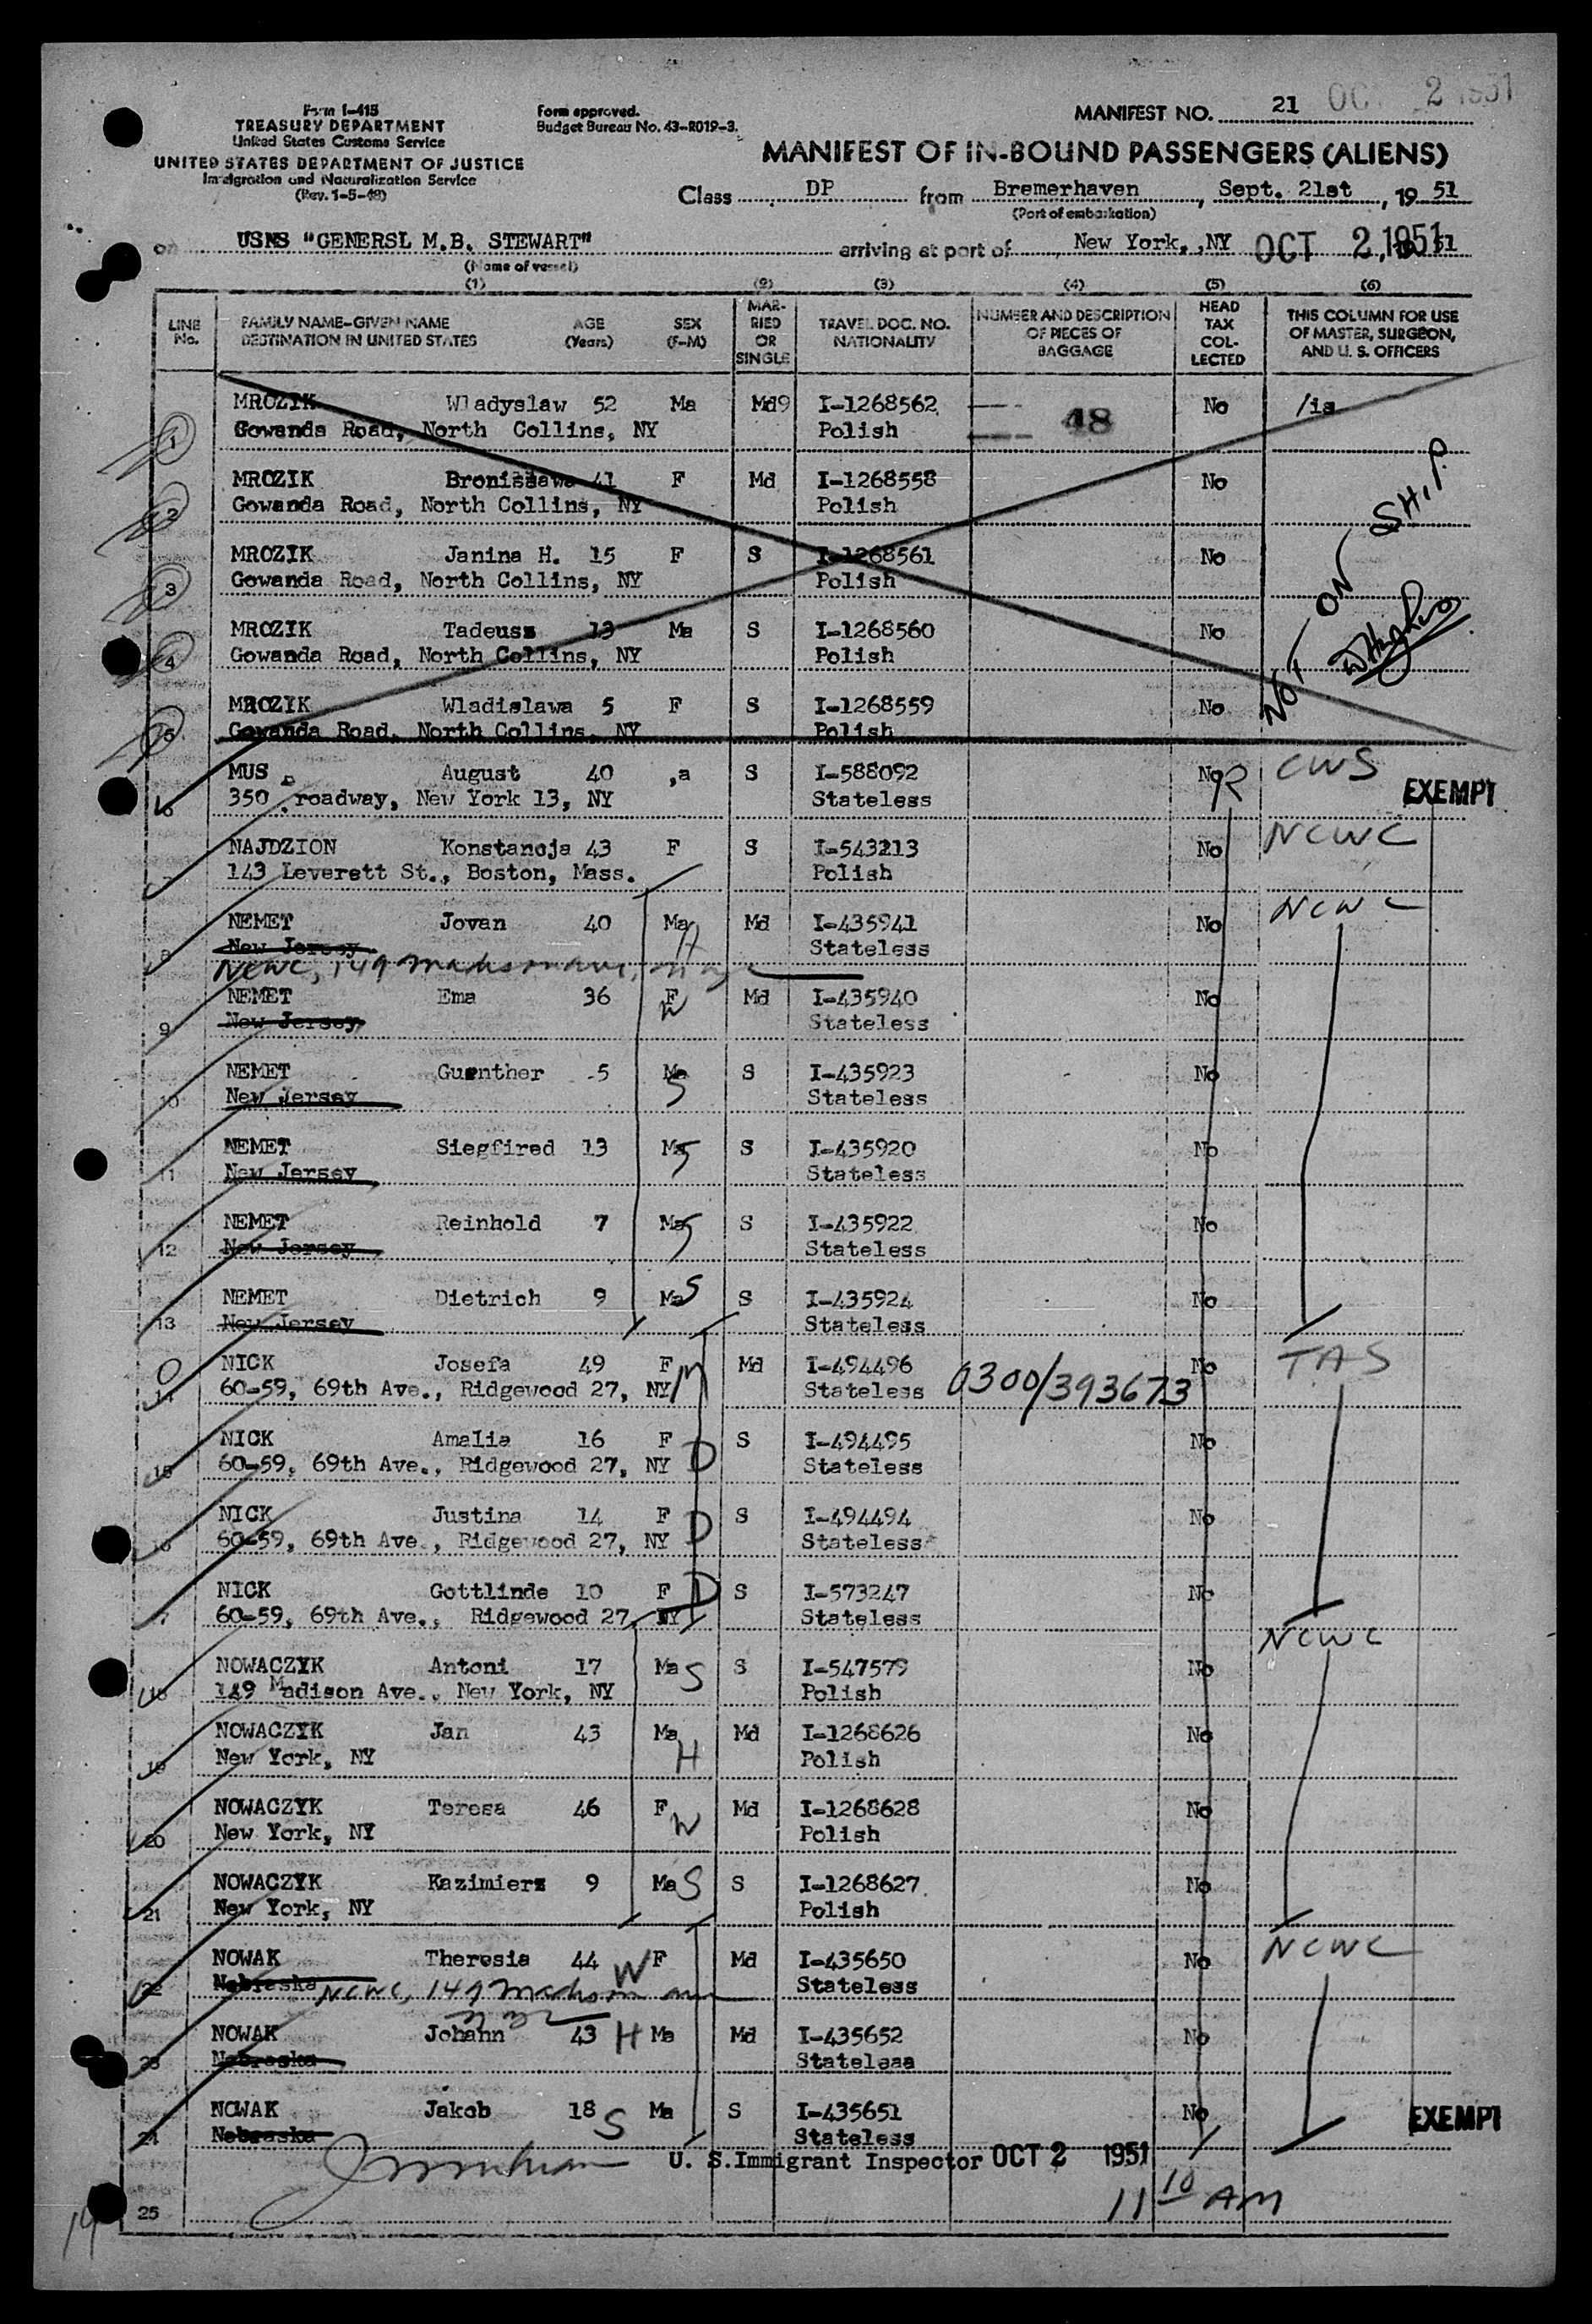 Form I-415
TREASURY DEPARTMENT
United States Customs Service
UNITED STATES DEPARTMENT OF JUSTICE
Immigration and Naturalization Service
(Rev. 1-5-49)
Form approved.
Budget Bureau No. 43-R019-3.
MANIFEST NO. 21 OCT 2 1951
MANIFEST OF IN-BOUND PASSENGERS (ALIENS)
Class DP from Bremerhaven, Sept. 21st, 19 51
(Port of embarkation)
on USNS "GENERSL M.B. STEWART" arriving at port of New York, ,NY OCT 2, 1951 51
(Name of vessel)
(1) (2) (3) (4) (5) (6)
LINE No. FAMILY NAME-GIVEN NAME DESTINATION IN UNITED STATES AGE (Years) SEX (F-M) MAR-RIED OR SINGLE TRAVEL DOC. NO. NATIONALITY NUMBER AND DESCRIPTION OF PIECES OF BAGGAGE HEAD TAX COL-LECTED THIS COLUMN FOR USE OF MASTER, SURGEON, AND U. S. OFFICERS
1 MROZIK Wladyslaw 52 Ma Md9 I-1268562 48 No /is
Gowanda Road, North Collins, NY Polish
2 MROZIK Bronislawa 41 F Md I-1268558 No
Gowanda Road, North Collins, NY Polish
3 MROZIK Janina H. 15 F S I-1268561 No
Gowanda Road, North Collins, NY Polish
4 MROZIK Tadeusz 13 Ma S I-1268560 No
Gowanda Road, North Collins, NY Polish
5 MROZIK Wladislawa 5 F S I-1268559 No
Gowanda Road, North Collins, NY Polish
NOT ON SHIP
6 MUS August 40 ,a S I-588092 No CWS
350 Broadway, New York 13, NY Stateless EXEMPT
7 NAJDZION Konstancja 43 F S I-543213 No NCWC
143 Leverett St., Boston, Mass. Polish
8 NEMET Jovan 40 Ma H Md I-435941 No NCWC
New Jersey Stateless
NCWC, 149 Madison Ave, N Y
9 NEMET Ema 36 F W Md I-435940 No
New Jersey Stateless
10 NEMET Guenther 5 Ma S S I-435923 No
New Jersey Stateless
11 NEMET Siegfired 13 Ma S S I-435920 No
New Jersey Stateless
12 NEMET Reinhold 7 Ma S S I-435922 No
New Jersey Stateless
13 NEMET Dietrich 9 Ma S S I-435924 No
New Jersey Stateless
14 NICK Josefa 49 F M Md I-494496 No TAS
60-59, 69th Ave., Ridgewood 27, NY Stateless 0300/393673
15 NICK Amalia 16 F S I-494495 No
60-59, 69th Ave., Ridgewood 27, NY D Stateless
16 NICK Justina 14 F D S I-494494 No
60-59, 69th Ave., Ridgewood 27, NY Stateless
17 NICK Gottlinde 10 F D S I-573247 No
60-59, 69th Ave., Ridgewood 27, NY Stateless
NCWC
18 NOWACZYK Antoni 17 Ma S S I-547579 No
149 Madison Ave., New York, NY Polish
19 NOWACZYK Jan 43 Ma H Md I-1268626 No
New York, NY Polish
20 NOWACZYK Teresa 46 F W Md I-1268628 No
New York, NY Polish
21 NOWACZYK Kazimierz 9 Ma S S I-1268627 No
New York, NY Polish
22 NOWAK Theresia 44 W F Md I-435650 No NCWC
Nebraska NCWC, 149 Madison Ave Stateless
23 NOWAK Johann 43 H Ma Md I-435652 No
Nebraska Stateless
24 NOWAK Jakob 18 S Ma S I-435651 No EXEMPT
Nebraska Stateless
U. S. Immigrant Inspector OCT 2 1951
25 11 10 AM